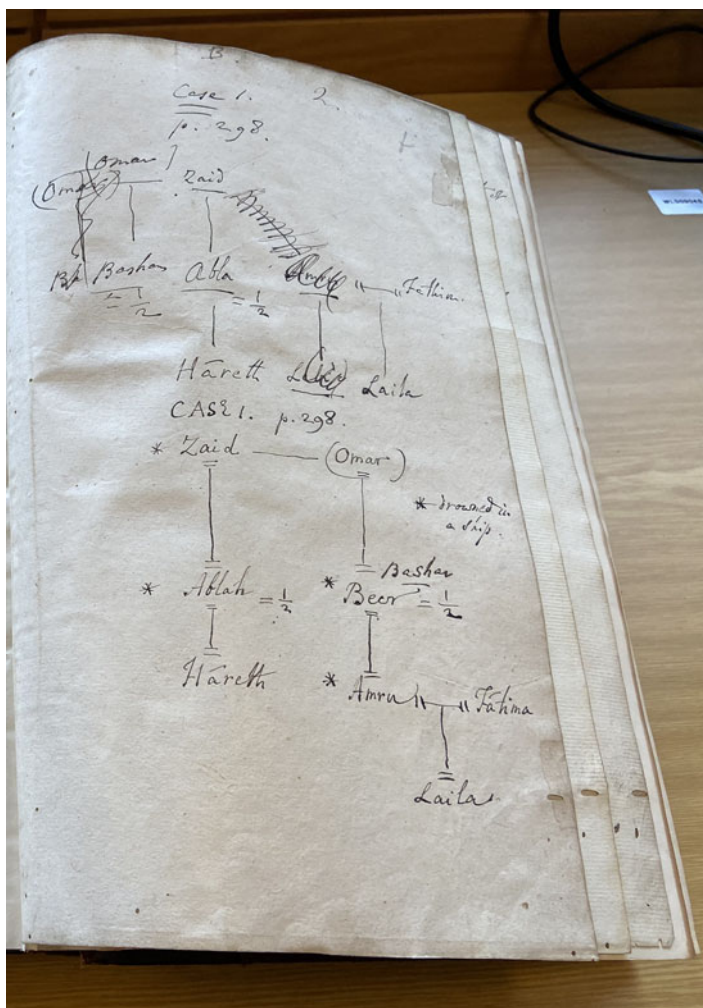 B.
Case 1. 2.
p. 298.
(Omar)
(Omar) Zaid
Bashar Abla Fathima.
= 1/2 = 1/2
Hāreth Laila
CASE 1. p. 298.
* Zaid (Omar)
* drowned in
a ship.
Bashar
* Ablah = 1/2 * Becr = 1/2
Hāreth * Amru Fátima
Laila